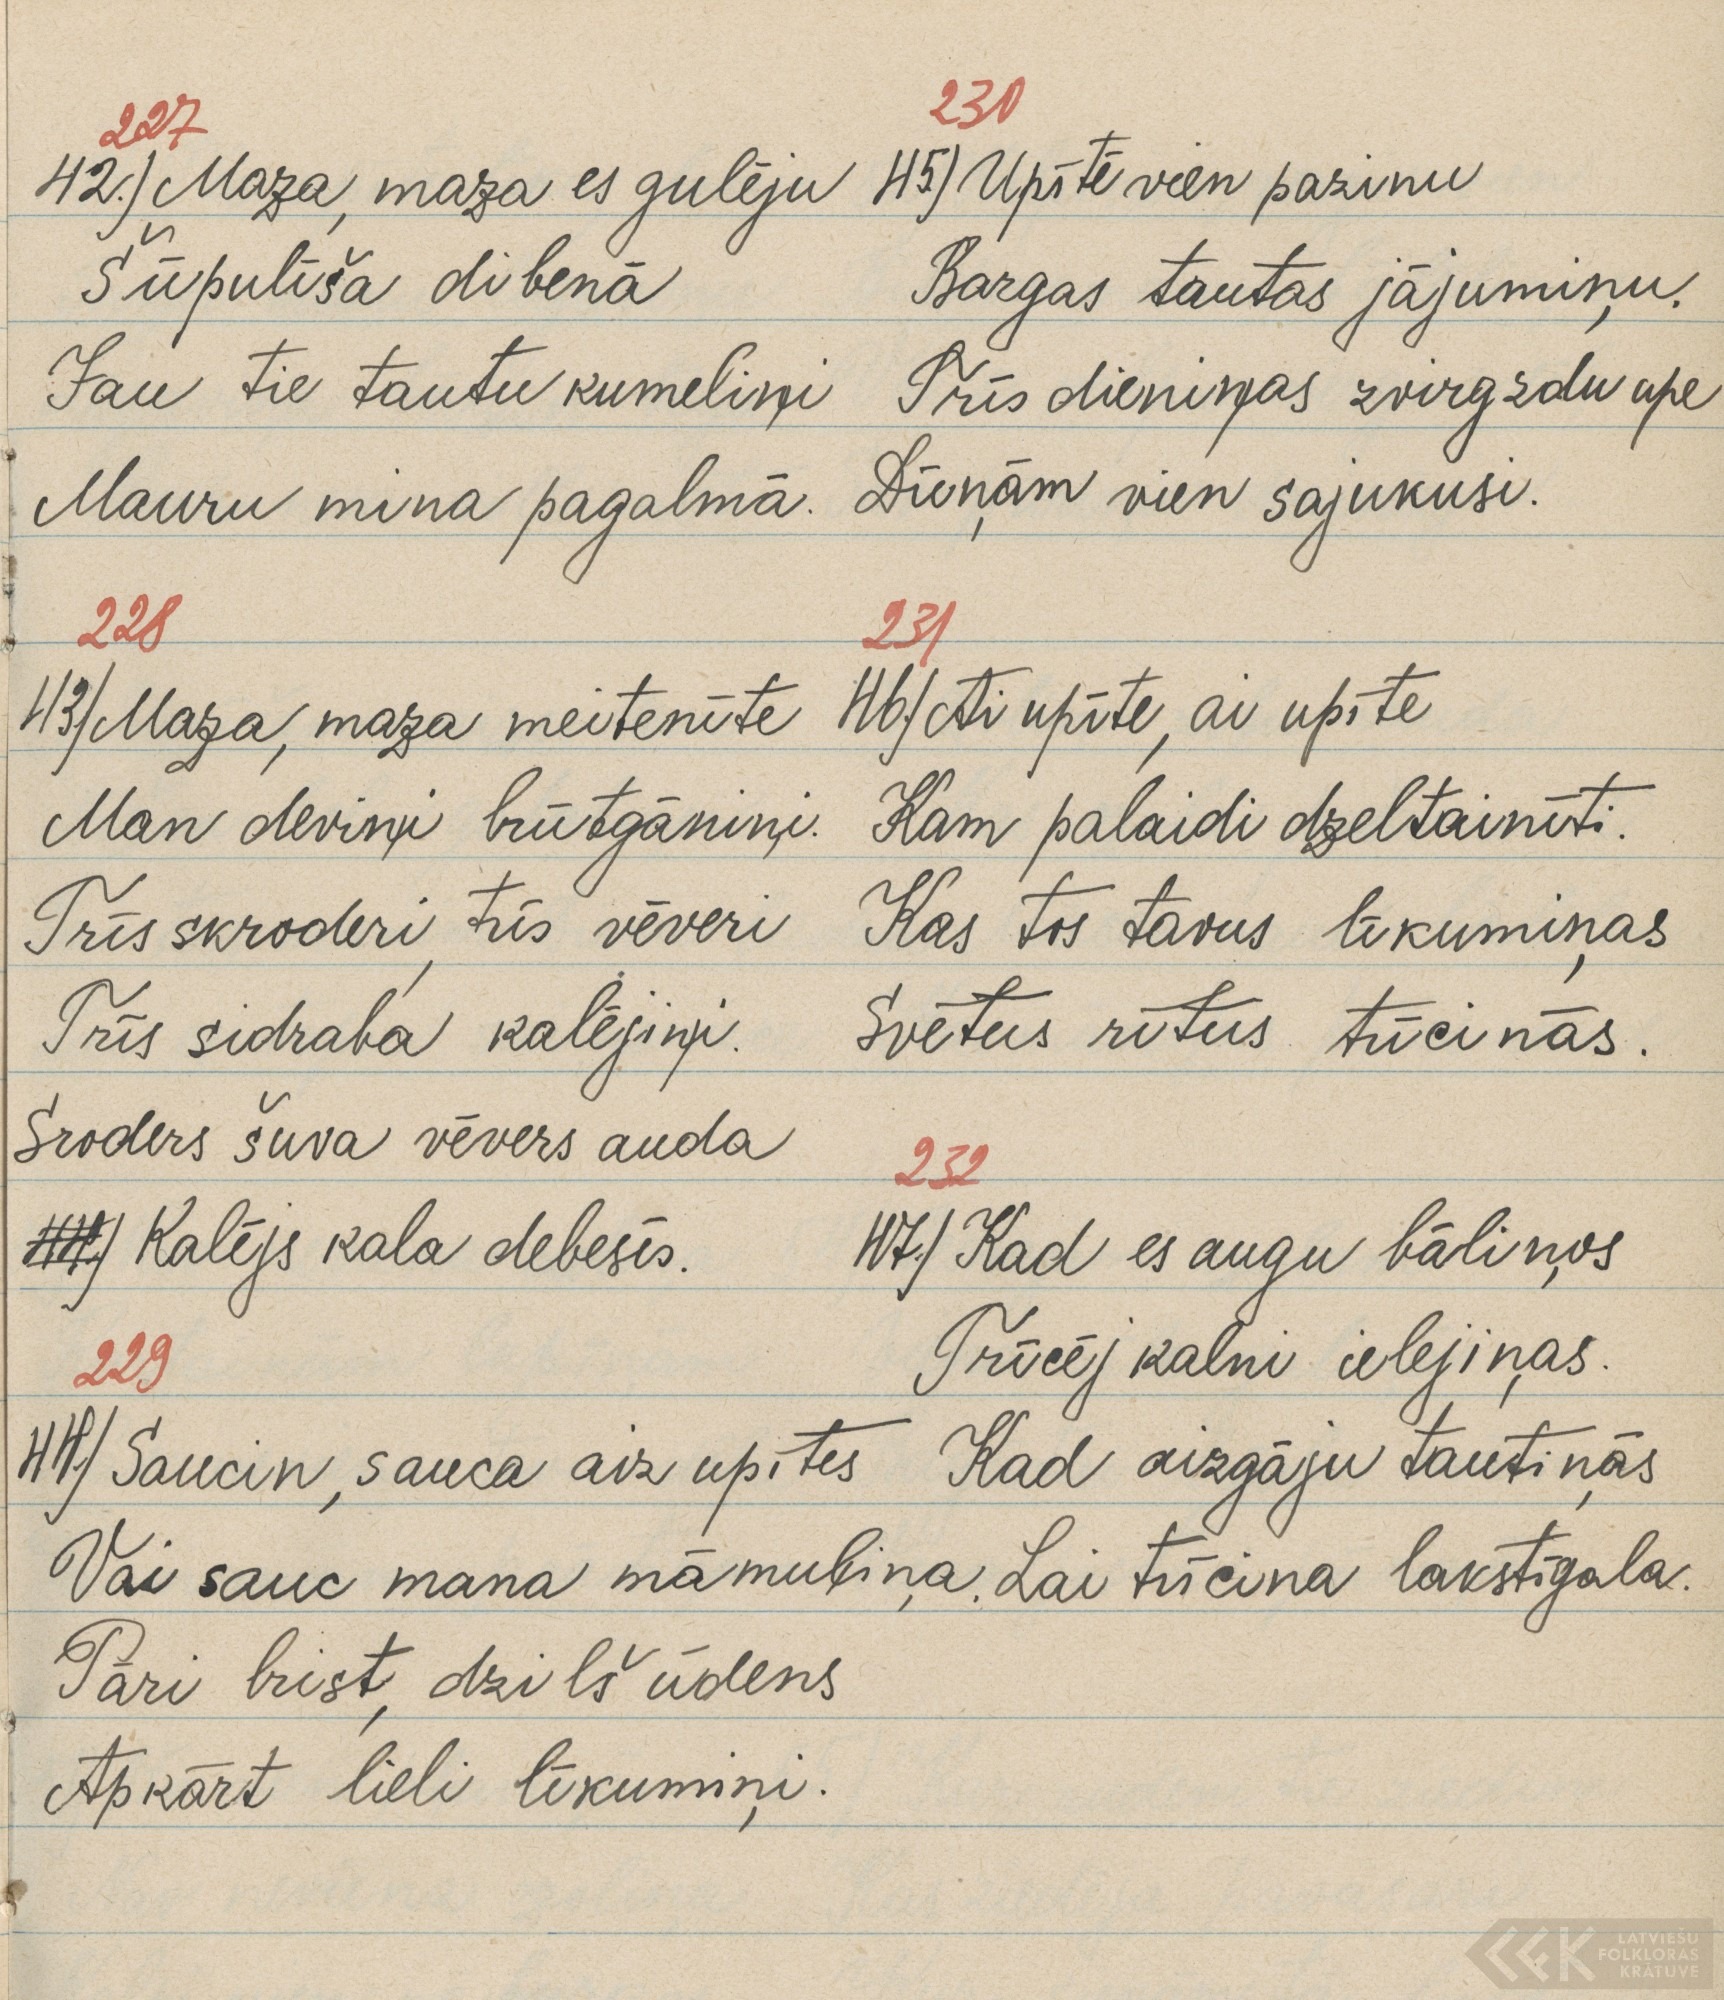 227
42.) Maza, maza es gulēju
Šūpulīša dibenā
Jau tie tautu kumeliņi
Mauru mina pagalmā.
228
43) Maza, maza meitenīte
Man deviņi brūtgāniņi.
Trīs skroderi, trīs vēveri
Trīs sidraba kalējiņi.
Sroders šuva vēvers auda
Kalējs kala debesīs.
229
44) Saucin, sauca aiz upītes
Vai sauc mana māmuliņa.
Pāri brist, dziļš ūdens
Apkārt lieli līkumiņi.
230
45) Upītē vien pazinu
Bargas tautas jājumiņu.
Trīs dieniņas zvirgzdu upe
Dūņām vien sajukusi.
231
46) Ai upīte, ai upīte
Kam palaidi dzeltainīti.
Kas tos tavus līkumiņas
Svētus rītus trīcinās.
232
47.) Kad es augu bāliņos
Trīcēj kalni ielejiņas.
Kad aizgāju tautiņās
Lai trīcina lakstīgala.
LATVIEŠU
FOLKLORAS
KRĀTUVE